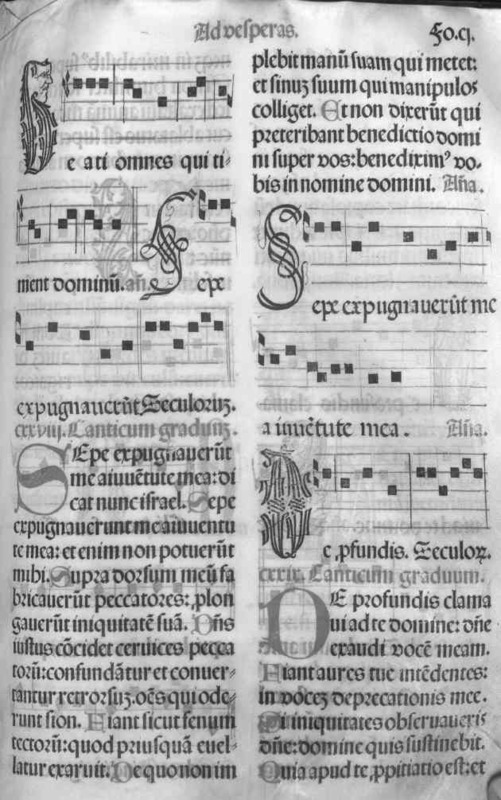 Ad vesperas.
Fo.cj.
Be ati omnes qui ti-
ment dominū. añ. Sepe
expugnauerūt Seculorūȝ.
cxxviij. Canticum graduūȝ.
SEpe expugnauerūt
me aiuuētute mea: di
cat nunc israel. Sepe
expugnauerunt me aiuuentu
te mea: et enim non potuerūt
mihi. Supra dorsum meū fa
bricauerūt peccatores: ꝓlon
gauerūt iniquitatē suā. Dn̄s
iustus cōcidet ceruices pecca
torū: confundātur et conuer-
tantur retrorsūȝ. oēs qui ode-
runt sion. Fiant sicut fenum
tectorū: quod priusquā euel-
latur exaruit. De quo non im
plebit manū suam qui metet:
et sinuȝ suum qui manipulos
colliget. Et non dixerūt qui
preteribant benedictio domi
ni super vos: benedixim᾿ vo.
bis in nomine domini. Aña.
Sepe expugnauerūt me
a iuuētute mea. Aña.
De ꝓfundis. Seculoꝝ.
cxxix. Canticum graduum.
DE profundis clama
ui ad te domine: dn̄e
exaudi vocē meam.
Fiant aures tue intēdentes:
in voceȝ deprecationis mee.
Si iniquitates obseruaueris
dn̄e: domine quis sustinebit.
Quia apud te ꝓpitiatio est: et